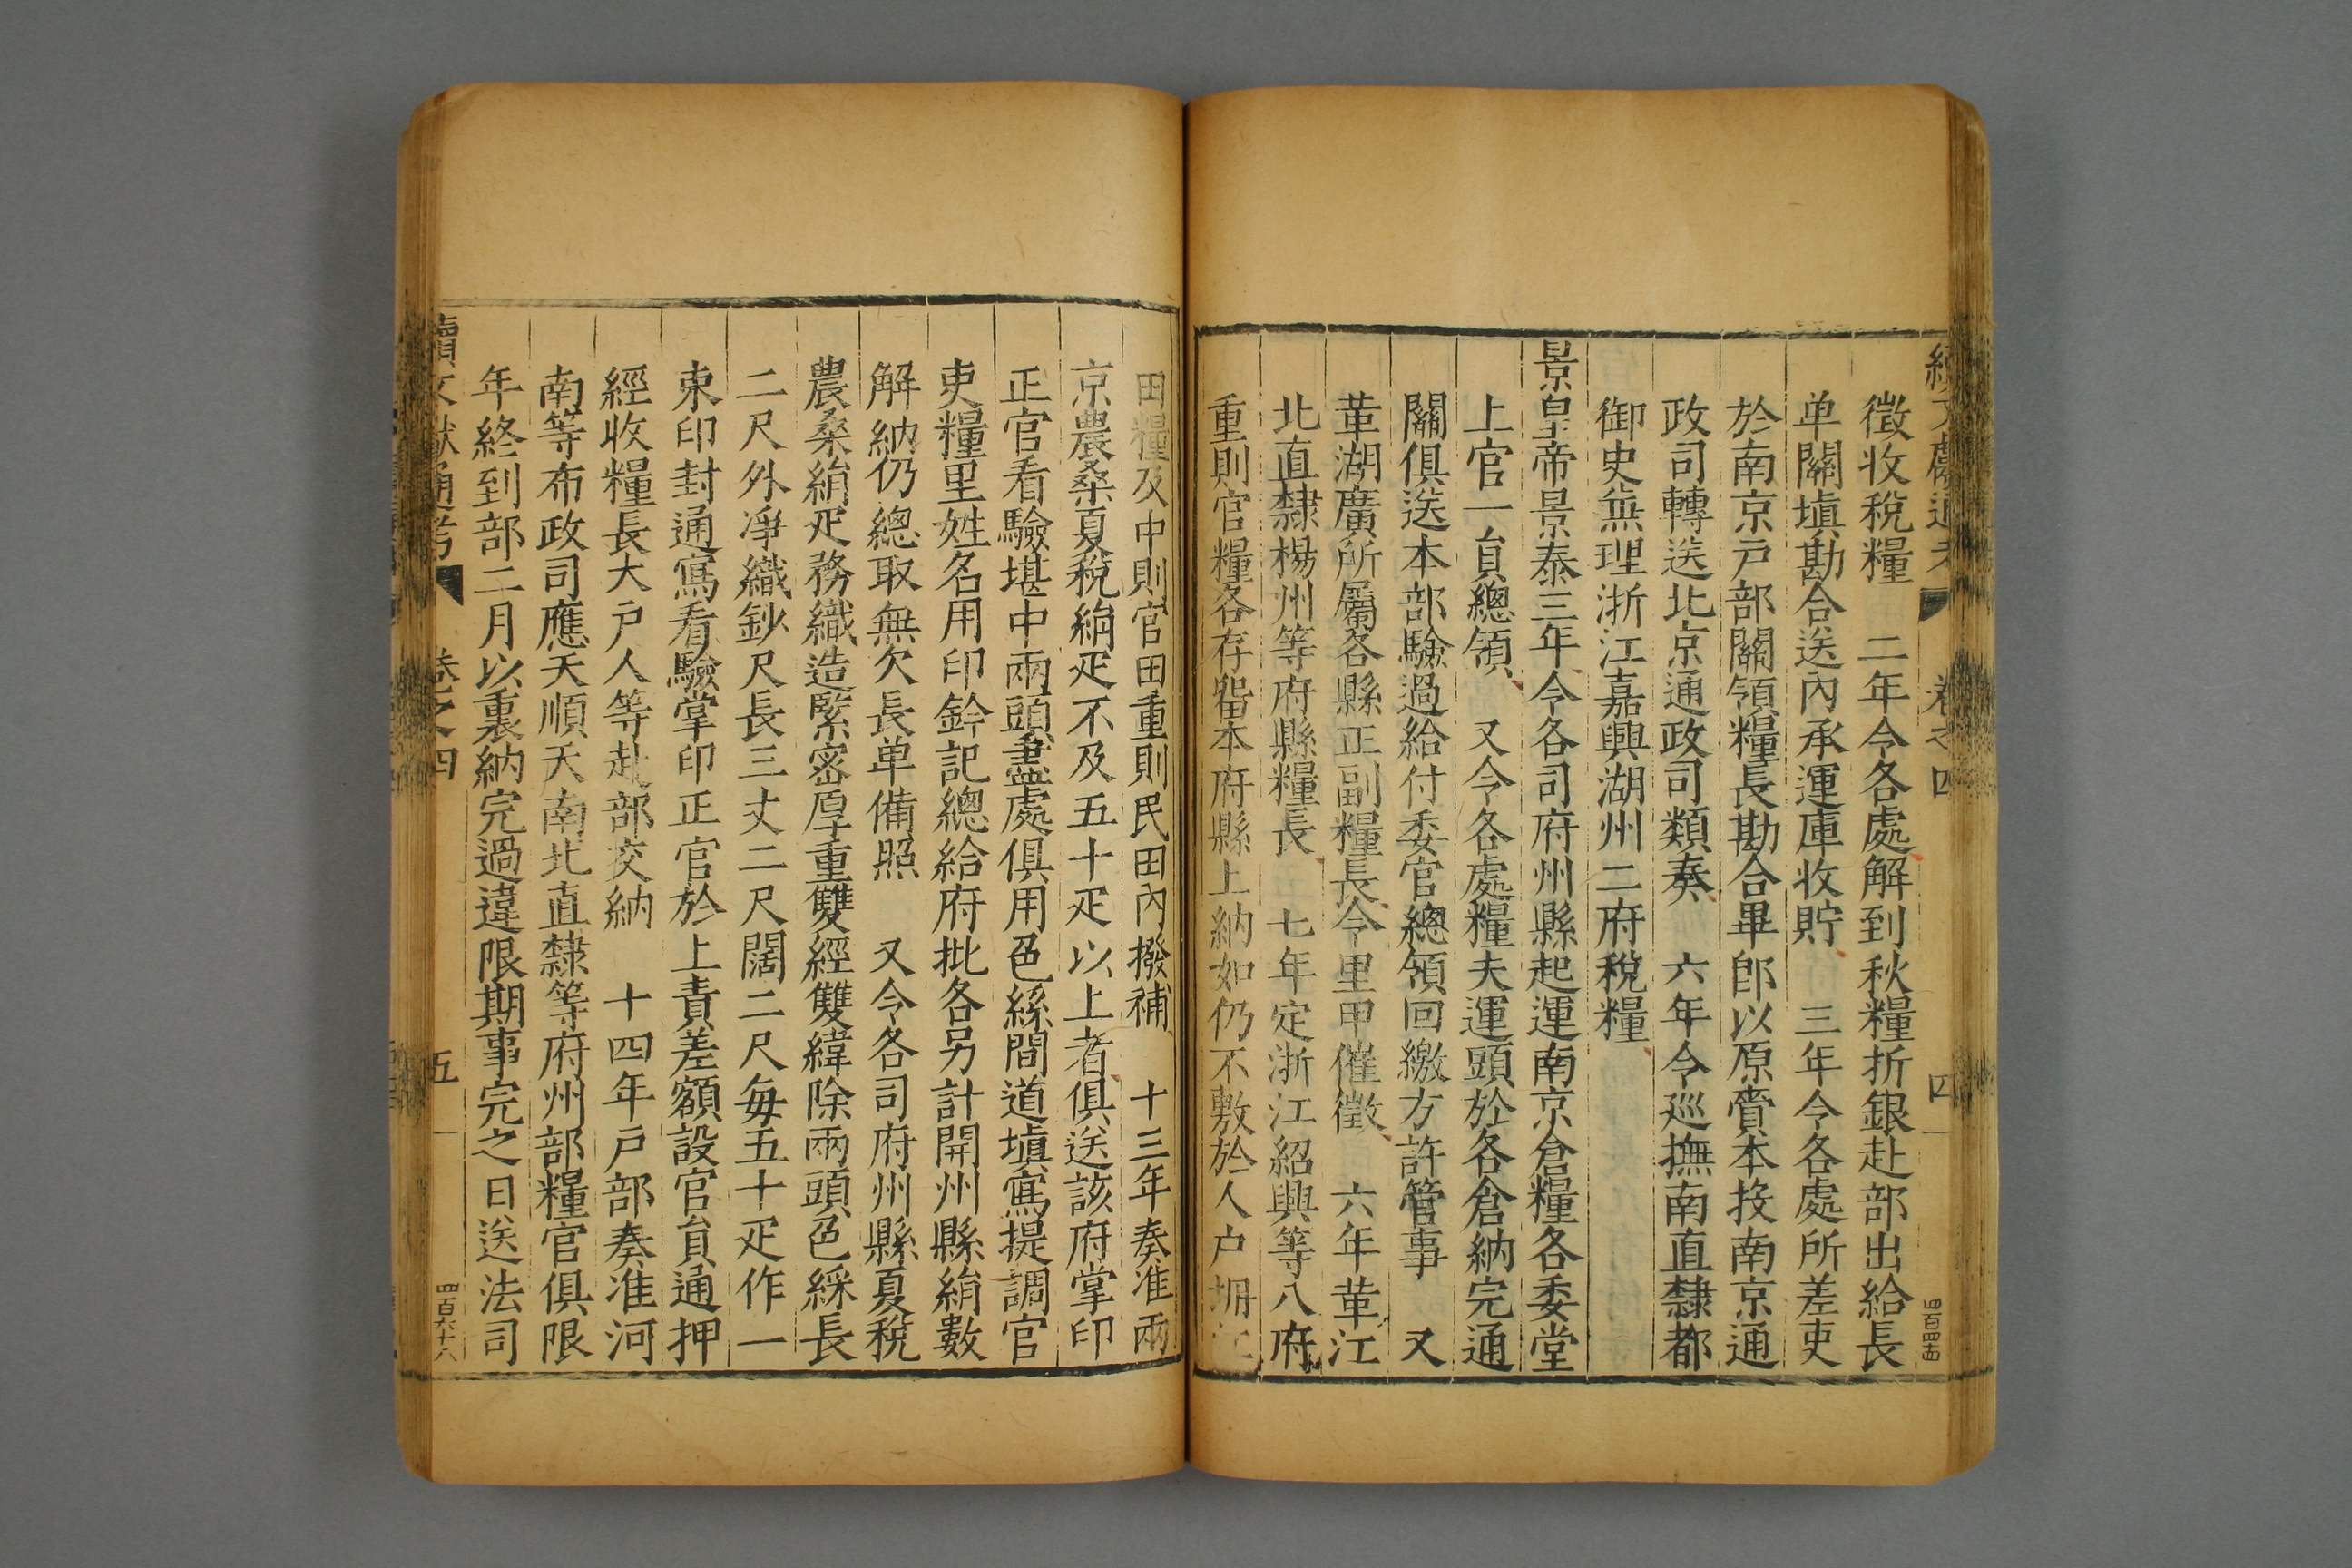 續文獻通考 卷之四 四 四百四十四
徵收稅糧 二年令各處解到秋糧折銀赴部出給長
单關塡勘合送內承運庫收貯 三年令各處所差吏
於南京戶部關領糧長勘合畢卽以原賫本投南京通
政司轉送北京通政司類奏 六年令巡撫南直隸都
御史兼理浙江嘉興湖州二府稅糧
景皇帝景泰三年令各司府州縣起運南京倉糧各委堂
上官一員總領 又令各處糧夫運頭於各倉納完通
關俱送本部驗過給付委官總領回繳方許管事 又
革湖廣所屬各縣正副糧長令里甲催徵 六年革江
北直隸楊州等府縣糧長 七年定浙江紹興等八府
重則官糧各存畱本府縣上納如仍不敷於人户坍江
田糧及中則官田重則民田內撥補 十三年奏准兩
京農桑夏稅絹疋不及五十疋以上者俱送該府掌印
正官看驗堪中兩頭盡處俱用色絲間道塡寫提調官
吏糧里姓名用印鈐記總給府批各另計開州縣絹數
解納仍總取無欠長单備照 又令各司府州縣夏稅
農桑絹疋務織造緊密厚重雙經雙緯除兩頭色綵長
二尺外凈織鈔尺長三丈二尺闊二尺每五十疋作一
束印封通寫看驗掌印正官於上責差額設官員通押
經收糧長大戶人等赴部交納 十四年戶部奏准河
南等布政司應天順天南北直隸等府州部糧官俱限
年終到部二月以裏納完過違限期事完之日送法司
續文獻通考 卷之四 五 四百六十八